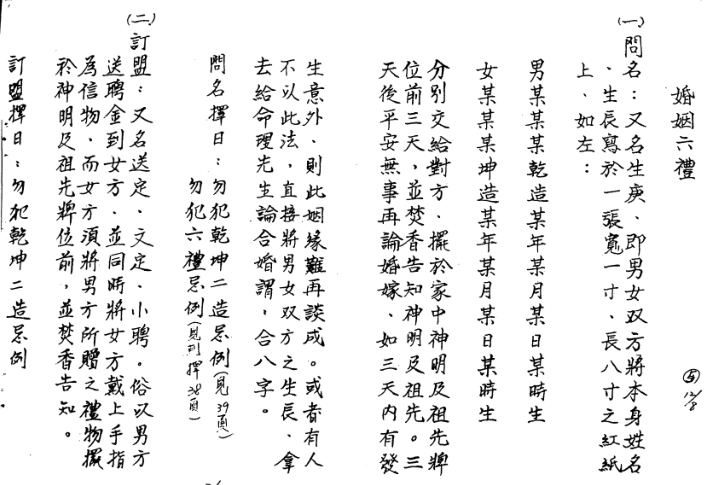 婚姻六禮
⑤
(一)問名：又名生庚、即男女双方將本身姓名
、生長寫於一張寬一寸、長八寸之紅紙
上、如左：
男某某某乾造某年某月某日某時生
女某某某坤造某年某月某日某時生
分別交給對方、擺於家中神明及祖先牌
位前三天，並焚香告知神明及祖先。三
天後平安無事再論婚嫁、如三天內有發
生意外、則此姻緣難再談成。或者有人
不以此法，直接將男女双方之生長、拿
去給命理先生論合婚謂，合八字。
問名擇日：勿犯乾坤二造忌例(見39頁)
勿犯六禮忌例(見到擇38頁)
(二)訂盟：又名送定、文定、小聘。俗以男方
送聘金到女方、並同時將女方戴上手指
為信物，而女方須將男方所贈之禮物擺
於神明及祖先牌位前，並焚香告知。
訂盟擇日：勿犯乾坤二造忌例